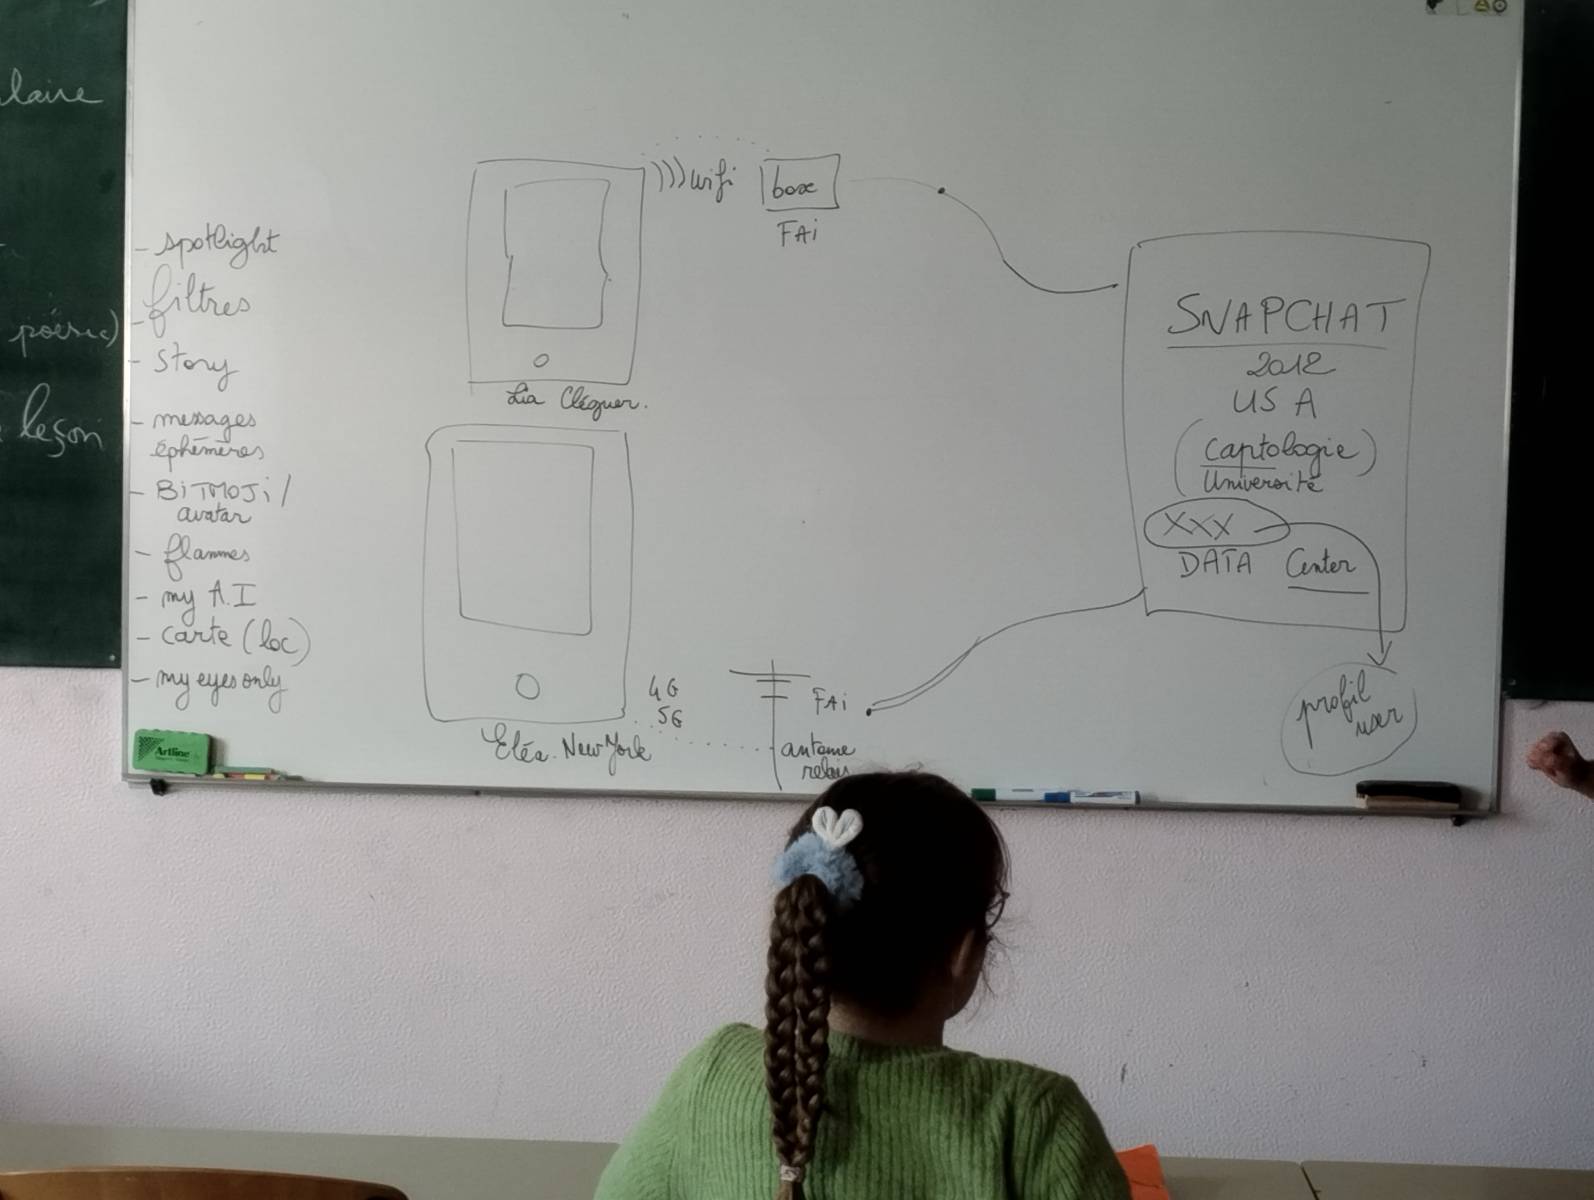 laire
poésie)
leçon
- spotlight
- filtres
- story
- messages
éphémères
- BiTMOJi /
avatar
- flammes
- my A.I
- carte (loc)
- my eyes only
Artline
)))wifi
box
FAi
Lia Cléguer.
Eléa. New York
4G
5G
FAi
antenne
relais
SNAPCHAT
2012
USA
(captologie)
Université
XXX
DATA Center
profil
user